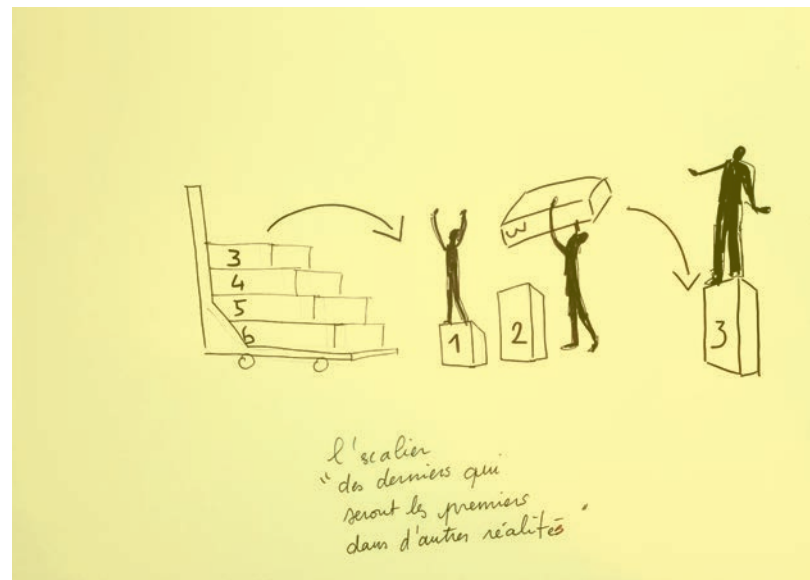 3
4
5
6
1
2
3
3
l'scalier
"des derniers qui
seront les premiers
dans d'autres réalités"